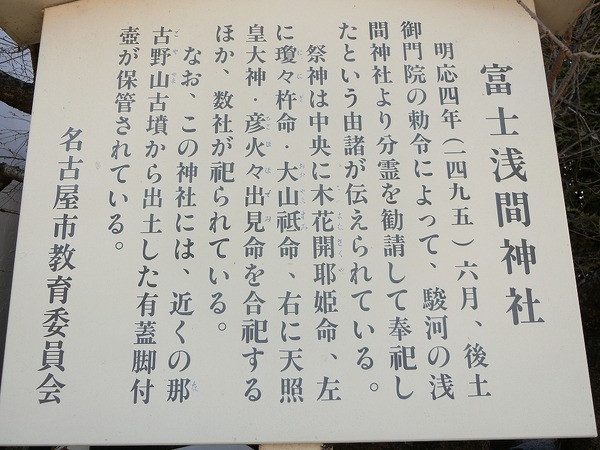 富士浅間神社
明応四年(一四九五)六月、後土
御門院の勅令によって、駿河の浅
間神社より分霊を勧請して奉祀し
たという由諸が伝えられている。
祭神は中央に木花開耶姫命、左
に瓊々杵命・大山祇命、右に天照
皇大神・彦火々出見命を合祀する
ほか、数社が祀られている。
なお、この神社には、近くの那
古野山古墳から出土した有蓋脚付
壺が保管されている。
名古屋市教育委員会